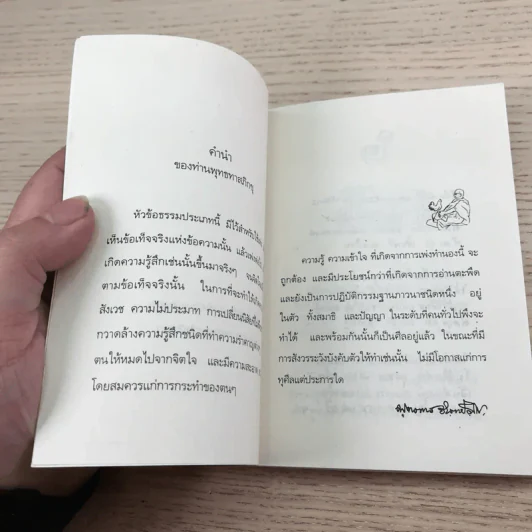 คำนำ
ของท่านพุทธทาสภิกขุ
หัวข้อธรรมประเภทนี้ มีไว้สำหรับ
เห็นข้อเท็จจริงแห่งข้อความนั้น แล้ว
เกิดความรู้สึกเช่นนั้นขึ้นมาจริงๆ
ตามข้อเท็จจริงนั้น ในการที่จะทำให้
สังเวช ความไม่ประมาท การเปลี่ยนนิสัย
กวาดล้างความรู้สึกชนิดที่ทำความรำคาญ
ตนให้หมดไปจากจิตใจ และมีความสะอาด
โดยสมควรแก่การกระทำของตนๆ
ความรู้ ความเข้าใจ ที่เกิดจากการเพ่งทำนองนี้ จะ
ถูกต้อง และมีประโยชน์กว่าที่เกิดจากการอ่านตะพืด
และยังเป็นการปฏิบัติกรรมฐานภาวนาชนิดหนึ่ง อยู่
ในตัว ทั้งสมาธิ และปัญญา ในระดับที่คนทั่วไปพึงจะ
ทำได้ และพร้อมกันนั้นก็เป็นศีลอยู่แล้ว ในขณะที่มี
การสังวรระวังบังคับตัวให้ทำเช่นนั้น ไม่มีโอกาสแก่การ
ทุศีลแต่ประการใด
พุทธทาส อินทปัญโญ